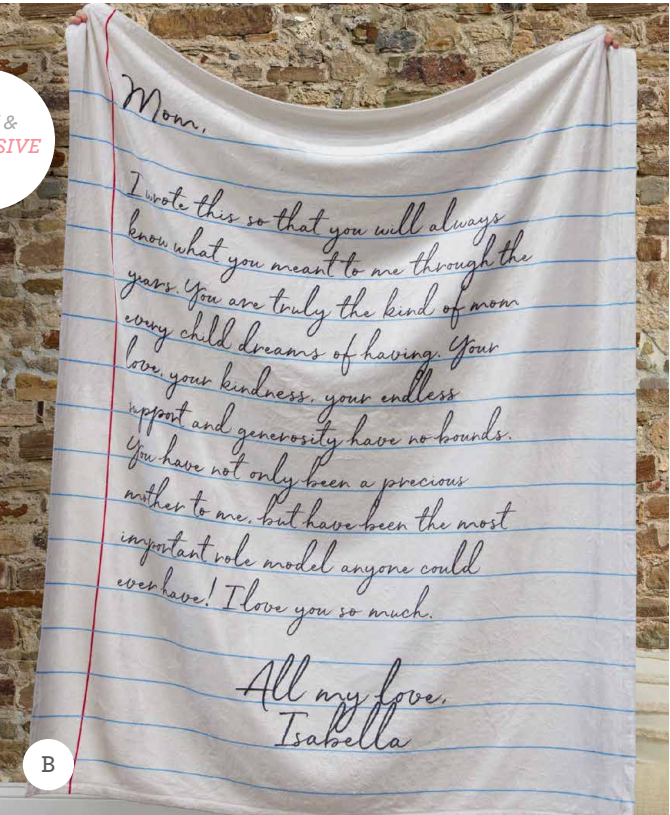 &
SIVE
Mom,
I wrote this so that you will always
know what you meant to me through the
years. You are truly the kind of mom
every child dreams of having. Your
love, your kindness, your endless
support and generosity have no bounds.
You have not only been a precious
mother to me, but have been the most
important role model anyone could
ever have! I love you so much.
All my love,
Isabella
B